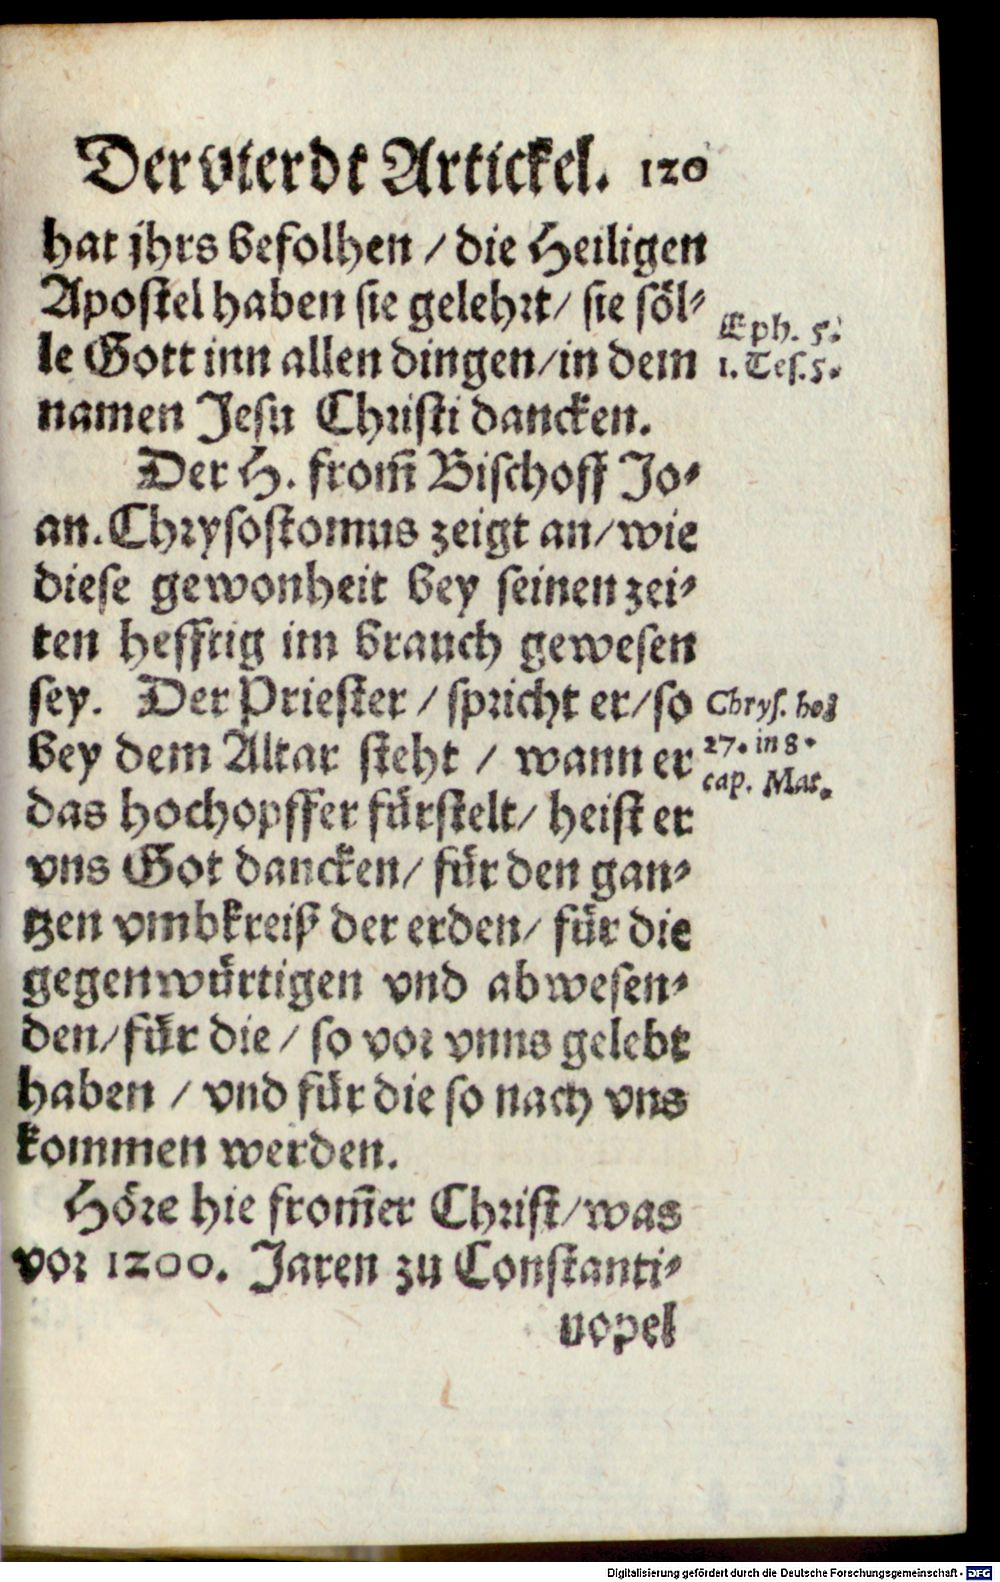 Der vierdt Artickel. 120
hat jhrs befolhen / die Heiligen
Apostel haben sie gelehrt / sie söl-
le Gott inn allen dingen / in dem
namen Jesu Christi dancken.
Eph. 5.
1. Tes. 5.
Der H. from̃ Bischoff Jo-
an. Chrysostomus zeigt an / wie
diese gewonheit bey seinen zei-
ten hefftig im brauch gewesen
sey. Der Priester / spricht er / so
bey dem Altar steht / wann er
das hochopffer fürstelt / heist er
vns Got dancken / für den gan-
tzen vmbkreiß der erden / für die
gegenwürtigen vnd abwesen-
den / für die / so vor vnns gelebt
haben / vnd für die so nach vns
kommen werden.
Chrys. ho
27. in 8.
cap. Mat.
Höre hie from̃er Christ / was
vor 1200. Jaren zu Constanti-
nopel
Digitalisierung gefördert durch die Deutsche Forschungsgemeinschaft - DFG